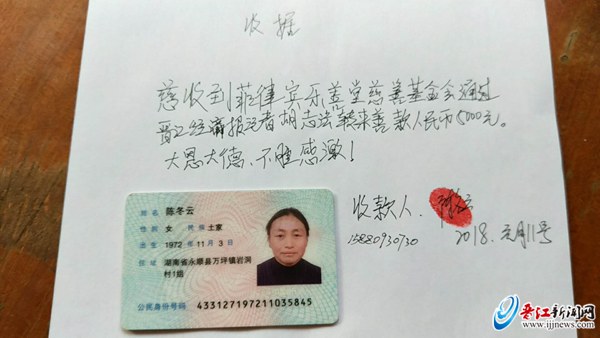 收据
慈收到菲律宾乐善堂慈善基金会通过
晋江经济报记者胡志法转来善款人民币5000元。
大恩大德、不胜感激！
收款人.
15880930730
2018.元月11号
姓名 陈冬云
性别 女 民族 土家
出生 1972 年 11 月 3 日
住址 湖南省永顺县万坪镇岩洞
村1组
公民身份号码 433127197211035845
晋江新闻网
www.ijjnews.com